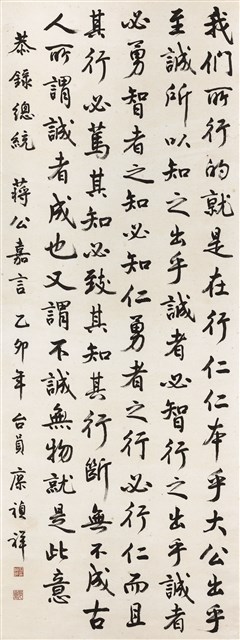 我們所行的就是在行仁仁本乎大公出乎
至誠所以知之出乎誠者必智行之出乎誠者
必勇智者之知必知仁勇者之行必行仁而且
其行必篤其知必致其知其行斷無不成古
人所謂誠者成也又謂不誠無物就是此意
恭錄總統 蔣公嘉言 乙卯年 台員 康禎祥